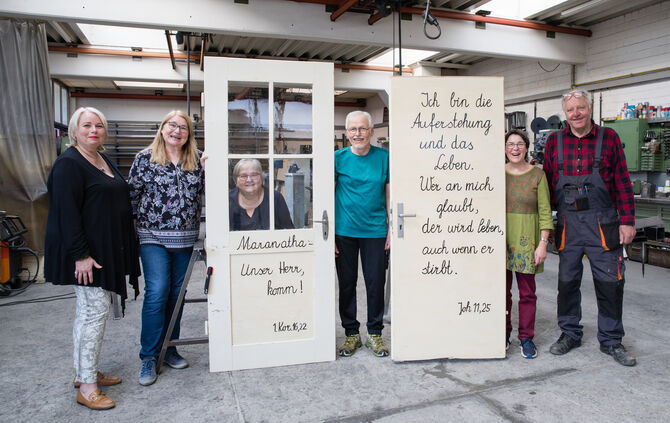 Maranatha-
Unser Herr,
komm!
1. Kor. 16,22
Ich bin die
Auferstehung
und das
Leben.
Wer an mich
glaubt,
der wird leben,
auch wenn er
stirbt.
Joh 11,25